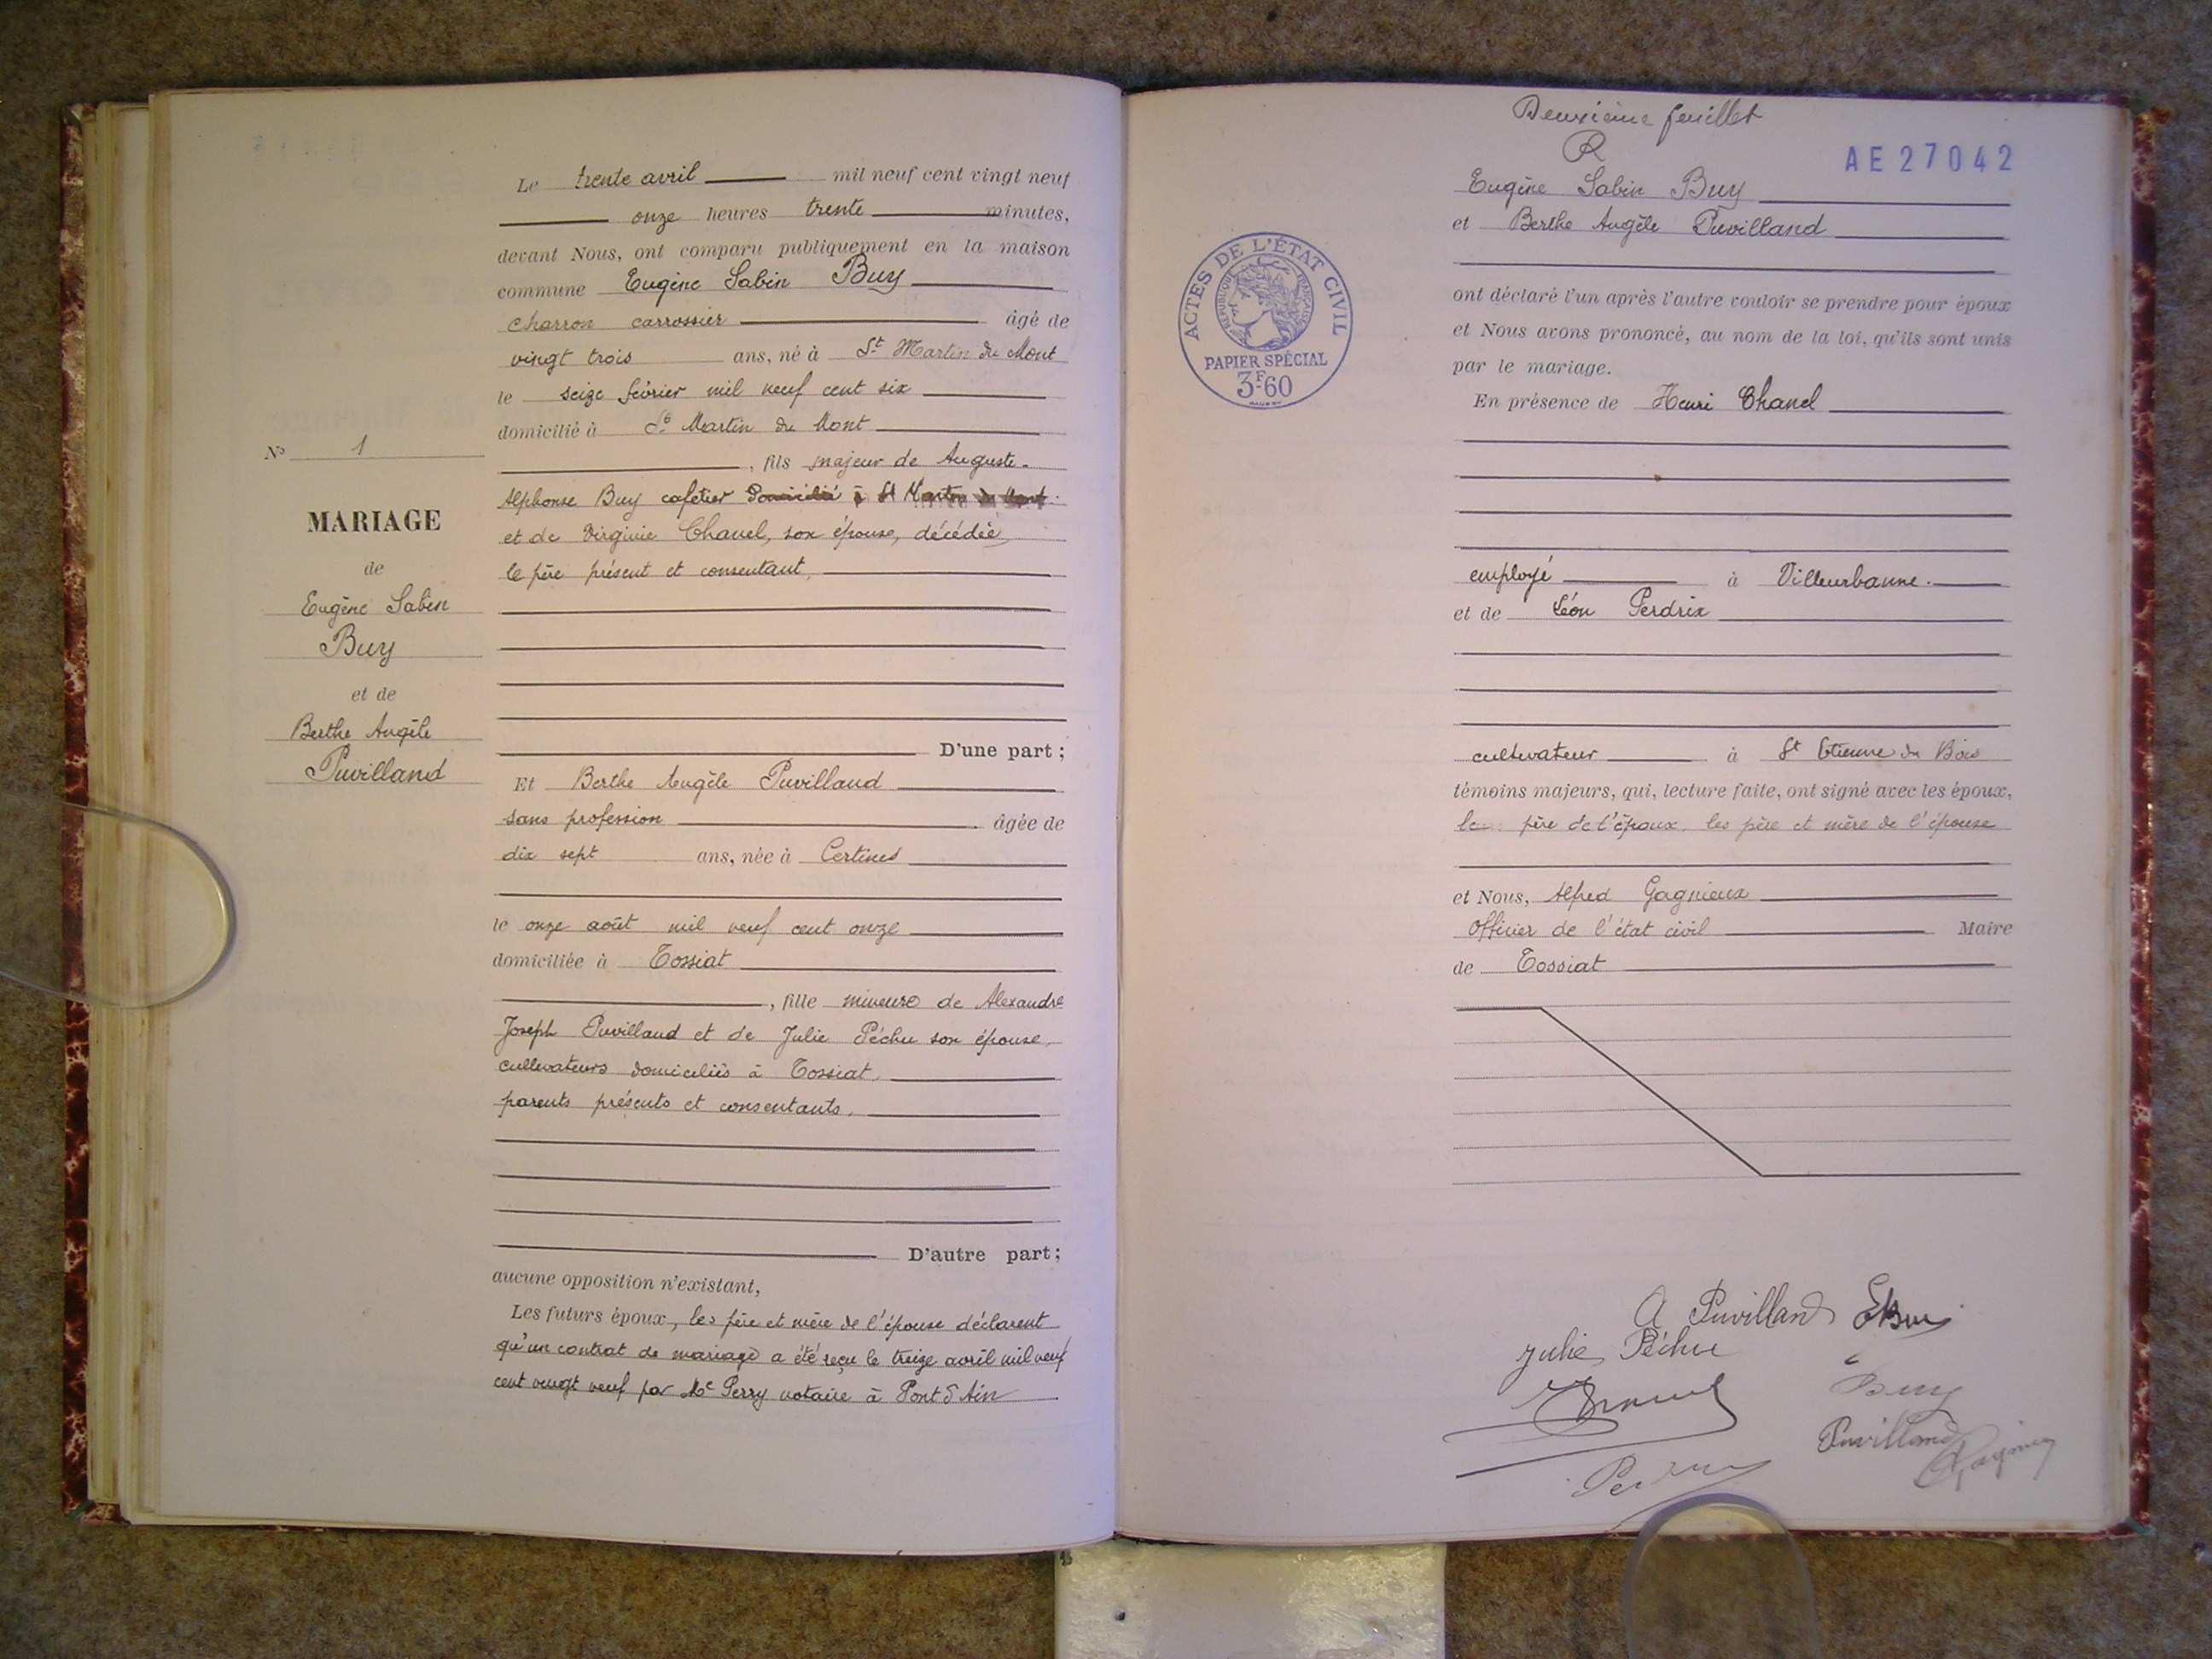 Le trente avril mil neuf cent vingt neuf
onze heures trente minutes,
devant Nous, ont comparu publiquement en la maison
commune Eugène Sabin Buy
charron carrossier âgé de
vingt trois ans, né à St Martin du Mont
le seize février mil neuf cent six
domicilié à St Martin du Mont
, fils majeur de Auguste-
Alphonse Buy cafetier domicilié à St Martin du Mont
et de Virginie Chanel, son épouse, décédée,
le père présent et consentant,
D'une part ;
Et Berthe Angèle Puvilland
sans profession âgée de
dix sept ans, née à Certines
le onze août mil neuf cent onze
domiciliée à Tossiat
, fille mineure de Alexandre
Joseph Puvilland et de Julie Péchu son épouse,
cultivateurs domiciliés à Tossiat,
parents présents et consentants,
D'autre part ;
aucune opposition n'existant,
Les futurs époux, les père et mère de l'épouse déclarent
qu'un contrat de mariage a été reçu le treize avril mil neuf
cent vingt neuf par Me Perry notaire à Pont d'Ain
No 1
MARIAGE
de
Eugène Sabin
Buy
et de
Berthe Angèle
Puvilland
Deuxième feuillet
R
AE27042
Eugène Sabin Buy
et Berthe Angèle Puvilland
ACTES DE L'ÉTAT CIVIL
RÉPUBLIQUE FRANÇAISE
PAPIER SPÉCIAL
3F60
ont déclaré l'un après l'autre vouloir se prendre pour époux
et Nous avons prononcé, au nom de la loi, qu'ils sont unis
par le mariage.
En présence de Henri Chanel
employé à Villeurbanne.
et de Léon Perdrix
cultivateur à St Etienne du Bois
témoins majeurs, qui, lecture faite, ont signé avec les époux,
le père de l'époux, les père et mère de l'épouse
et Nous, Alfred Gagnieux
Officier de l'état civil Maire
de Tossiat
A Puvilland EBuy
Julie Péchu
Buy
Puvilland